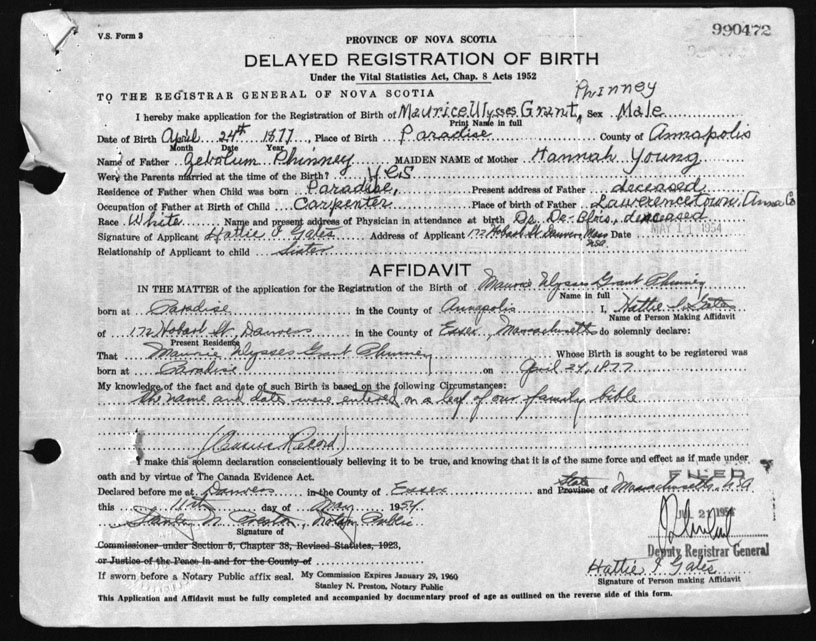 V.S. Form 3
990472
PROVINCE OF NOVA SCOTIA
DELAYED REGISTRATION OF BIRTH
Under the Vital Statistics Act, Chap. 8 Acts 1952
TO THE REGISTRAR GENERAL OF NOVA SCOTIA
Phinney
I hereby make application for the Registration of Birth of Maurice Ulysses Grant, Sex Male
Print Name in full
Date of Birth April 24th 1877, Place of Birth Paradise County of Annapolis
Month Date Year
Name of Father Zebolum Phinney MAIDEN NAME of Mother Hannah Young
Were the Parents married at the time of the Birth? Yes
Residence of Father when Child was born Paradise, Present address of Father deceased
Occupation of Father at Birth of Child Carpenter Place of birth of Father Lawrencetown, Anna Co
Race White Name and present address of Physician in attendance at birth Dr. De-Blois, deceased
Signature of Applicant Hattie I Gates Address of Applicant 172 Hobart St Danvers, Mass USA Date MAY 11 1954
Relationship of Applicant to child Sister
AFFIDAVIT
IN THE MATTER of the application for the Registration of the Birth of Maurice Ulysses Grant Phinney
Name in full
born at Paradise in the County of Annapolis I, Hattie I. Gates
Name of Person Making Affidavit
of 172 Hobart St. Danvers in the County of Essex, Massachusetts do solemnly declare:
Present Residence
That Maurice Ulysses Grant Phinney Whose Birth is sought to be registered was
born at Paradise on April 24, 1877
My knowledge of the fact and date of such Birth is based on the following Circumstances:
The name and date were entered on a leaf of our family bible
(Census Record)
I make this solemn declaration conscientiously believing it to be true, and knowing that it is of the same force and effect as if made under
oath and by virtue of The Canada Evidence Act.
FILED
Declared before me at Danvers in the County of Essex and State Province of Massachusetts, U.S.A
this 11th day of May 1954.
Stanley N. Preston, Notary Public
Signature of
Commissioner under Section 5, Chapter 38, Revised Statutes, 1923,
Deputy Registrar General
or Justice of the Peace in and for the County of
Hattie I Gates
If sworn before a Notary Public affix seal. My Commission Expires January 29, 1960
Signature of Person making Affidavit
Stanley N. Preston, Notary Public
This Application and Affidavit must be fully completed and accompanied by documentary proof of age as outlined on the reverse side of this form.